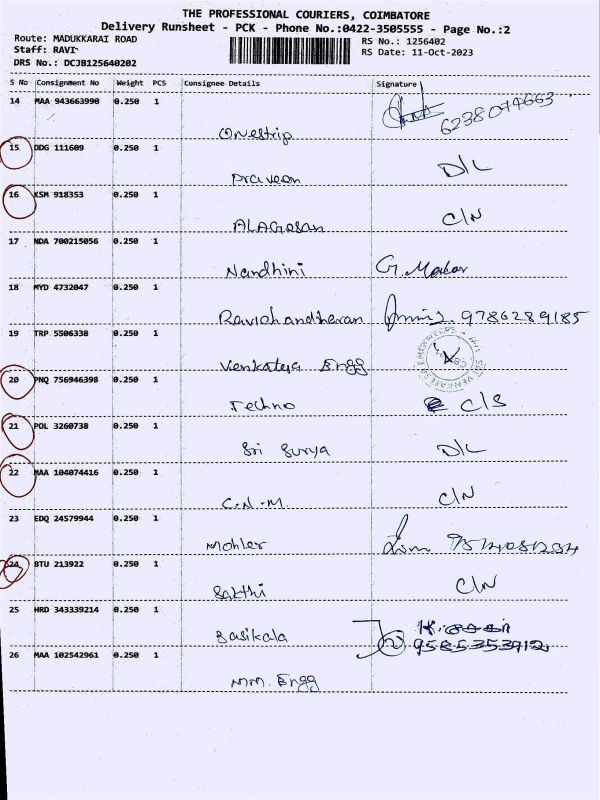 THE PROFESSIONAL COURIERS, COIMBATORE
Delivery Runsheet - PCK - Phone No.:0422-3505555 - Page No.:2
Route: MADUKKARAI ROAD RS No.: 1256402
Staff: RAVI RS Date: 11-Oct-2023
DRS No.: DCJB125640202
S No Consignment No Weight PCS Consignee Details Signature
14 MAA 943663990 0.250 1
Onestrip 6238044663
15 DDG 111609 0.250 1
Praveen D/L
16 KSM 918353 0.250 1
ALAGesan C/N
17 NDA 700215056 0.250 1
Nandhini G.
18 MYD 4732047 0.250 1
Ravichandheran 9786289185
19 TRP 5506338 0.250 1
Venkatesa Engg
20 PNQ 756946398 0.250 1
Techno C/S
21 POL 3260738 0.250 1
Sri Surya D/L
22 MAA 104074416 0.250 1
C.N.M. C/N
23 EDQ 24579944 0.250 1
Mohler
24 BTU 213922 0.250 1
Sakthi C/N
25 HRD 343339214 0.250 1
Sasikala K.
26 MAA 102542961 0.250 1
MM. Engg